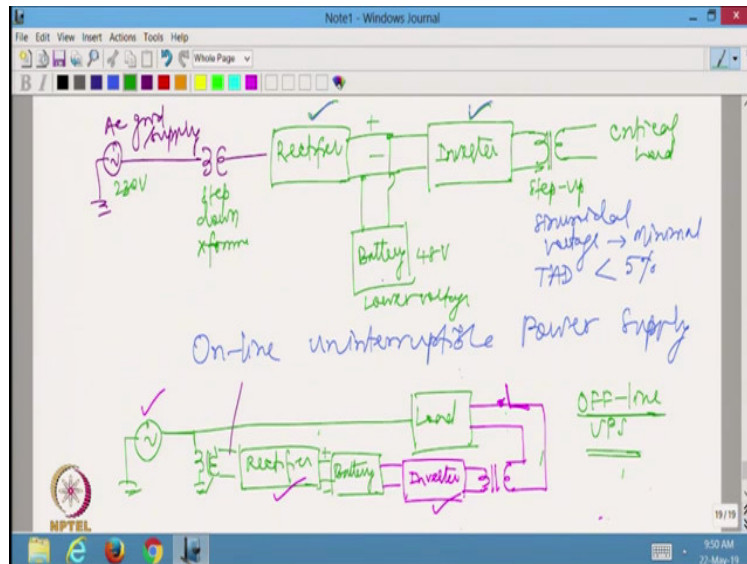 Note1 - Windows Journal
File Edit View Insert Actions Tools Help
Whole Page
B I
Ac grid supply
230V
step down xformer
Rectifier
+
-
Battery
48V
Lower voltage
Inverter
Step-up
Critical Load
Sinusoidal
voltage → minimal
THD < 5%
On-line uninterruptible Power Supply
Load
OFF-line
UPS
Rectifier
+
Battery
Inverter
NPTEL
19/19
9:50 AM
22-May-19